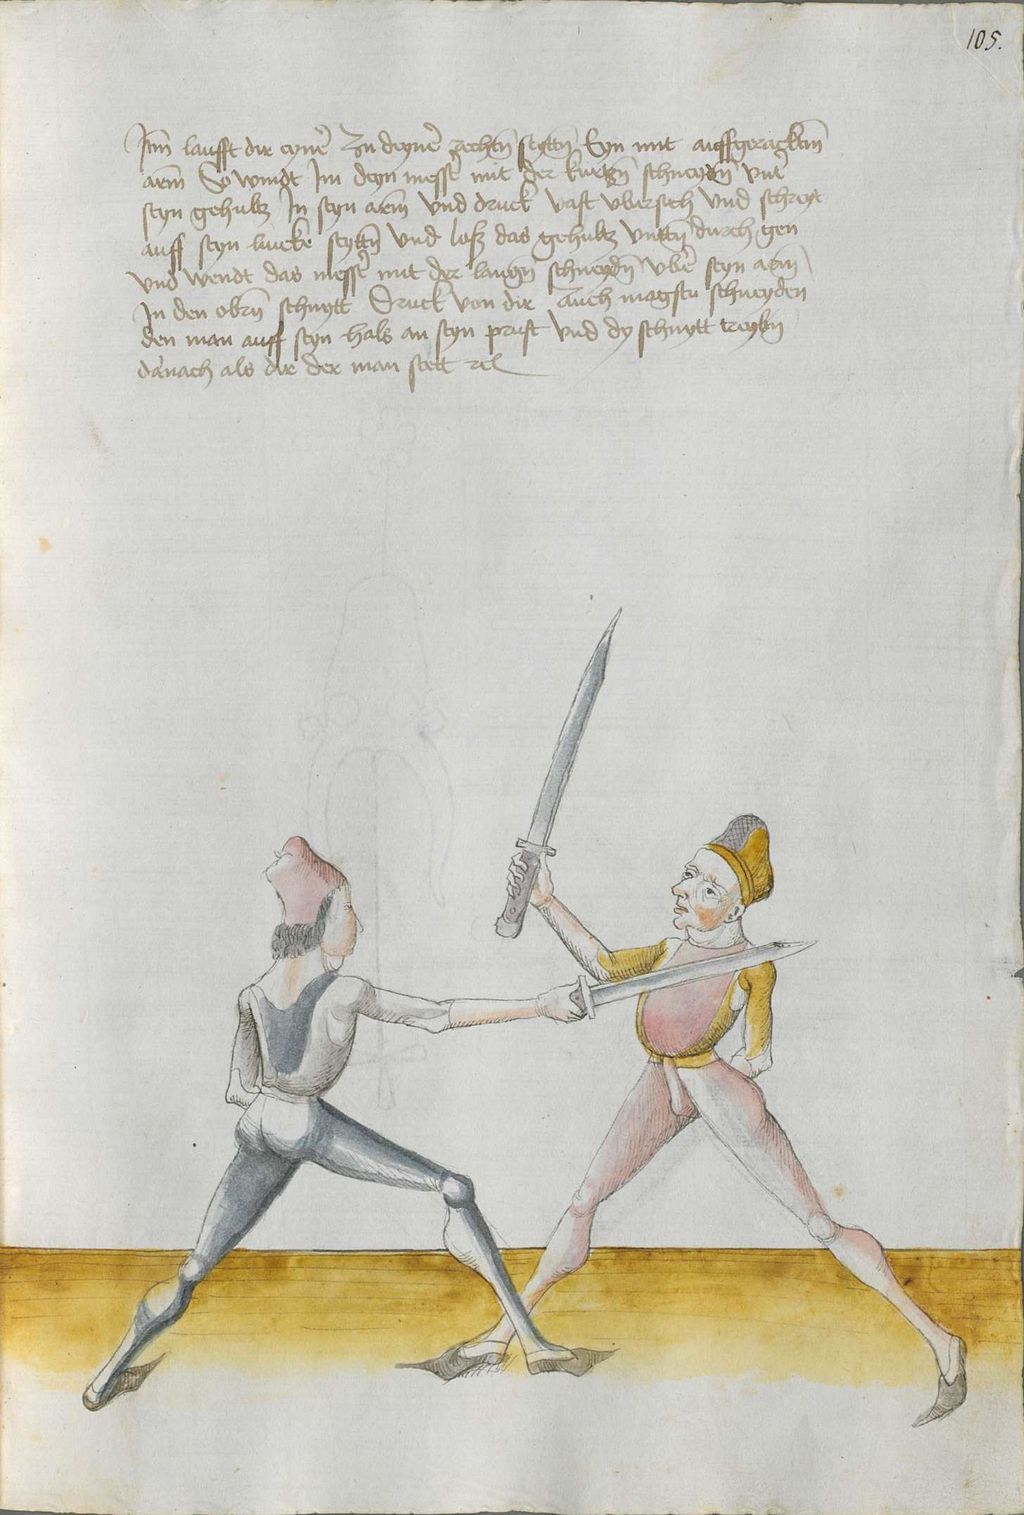 105.
Itm laufft dir eyner zu deyner rechtn seyttn Eyn mit auffgeracktm
arm So windt Im deyn messer mit der kurtzn schneydn vnter
seyn gehultz In seyn arm vnd druck vast vbersich vnd schreyt
auff seyn lincke seyttn vnd loß das gehultz vnttn durch gen
vnd wendt das messer mit der langn schneydn vber seyn arm
In den obrn schnytt Druck von dir Auch magstu schneyden
den man auff seyn hals an seyn prust vnd dy schnytt treybn
darnach als dir der man stett